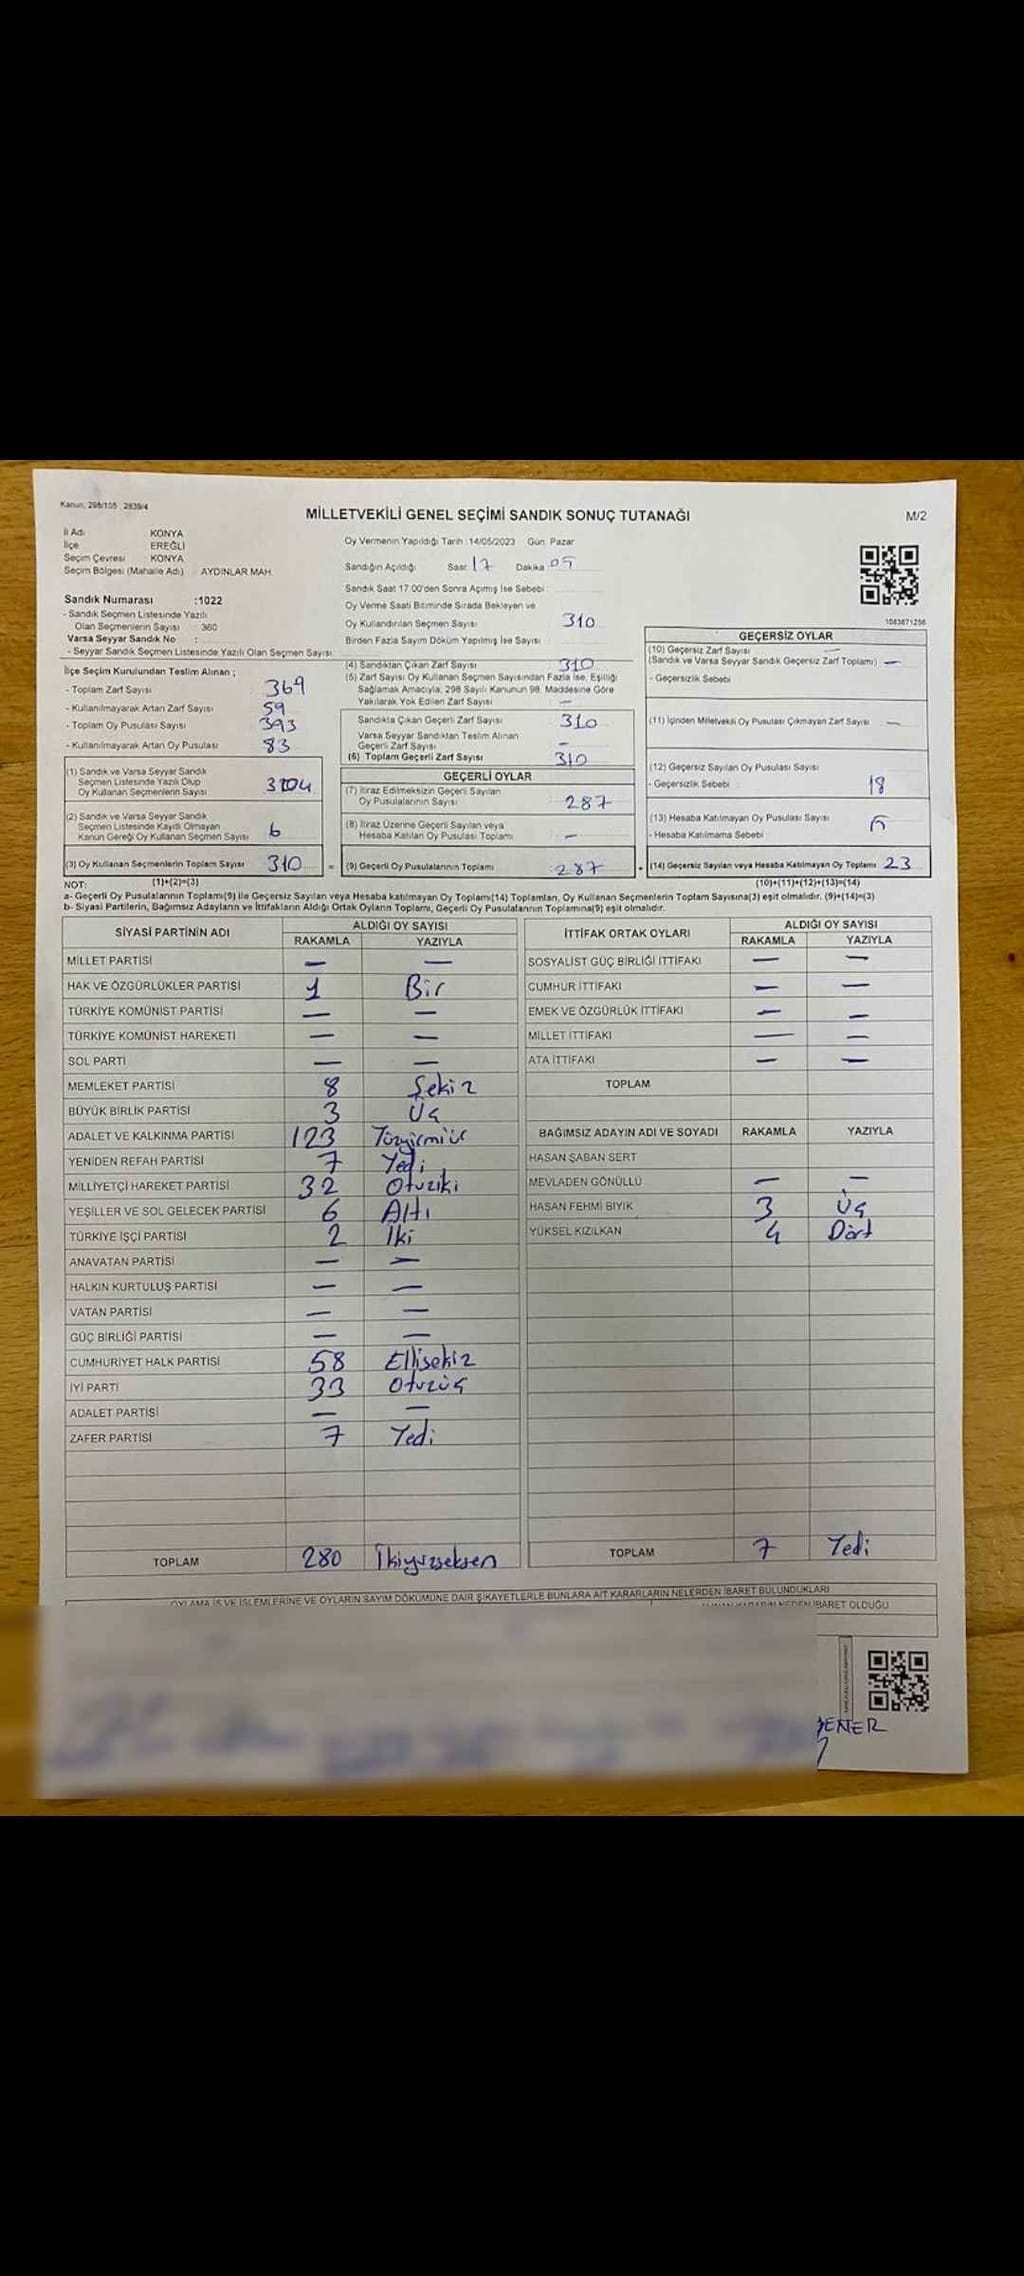 Kanun: 298/105 , 2839/4
MİLLETVEKİLİ GENEL SEÇİMİ SANDIK SONUÇ TUTANAĞI
M/2
İl Adı KONYA
İlçe EREĞLİ
Seçim Çevresi : KONYA
Seçim Bölgesi (Mahalle Adı) : AYDINLAR MAH.
Sandık Numarası :1022
- Sandık Seçmen Listesinde Yazılı
Olan Seçmenlerin Sayısı : 360
Varsa Seyyar Sandık No :
- Seyyar Sandık Seçmen Listesinde Yazılı Olan Seçmen Sayısı:
Oy Vermenin Yapıldığı Tarih :14/05/2023 Gün: Pazar
Sandığın Açıldığı Saat 17 Dakika 05
Sandık Saat 17:00'den Sonra Açımış İse Sebebi
Oy Verme Saati Bitiminde Sırada Bekleyen ve
Oy Kullandırılan Seçmen Sayısı 310
Birden Fazla Sayım Döküm Yapılmış İse Sayısı
1083871256
İlçe Seçim Kurulundan Teslim Alınan ;
- Toplam Zarf Sayısı 369
- Kullanılmayarak Artan Zarf Sayısı 59
- Toplam Oy Pusulası Sayısı 393
- Kullanılmayarak Artan Oy Pusulası 83
(1) Sandık ve Varsa Seyyar Sandık
Seçmen Listesinde Yazılı Olup
Oy Kullanan Seçmenlerin Sayısı
(2) Sandık ve Varsa Seyyar Sandık
Seçmen Listesinde Kayıtlı Olmayan
Kanun Gereği Oy Kullanan Seçmen Sayısı 6
(3) Oy Kullanan Seçmenlerin Toplam Sayısı 310 =
(1)+(2)=(3)
(4) Sandıktan Çıkan Zarf Sayısı 310
(5) Zarf Sayısı Oy Kullanan Seçmen Sayısından Fazla İse, Eşitliği
Sağlamak Amacıyla; 298 Sayılı Kanunun 98. Maddesine Göre
Yakılarak Yok Edilen Zarf Sayısı —
Sandıkta Çıkan Geçerli Zarf Sayısı 310
Varsa Seyyar Sandıktan Teslim Alınan
Geçerli Zarf Sayısı —
(6) Toplam Geçerli Zarf Sayısı 310
GEÇERLİ OYLAR
(7) İtiraz Edilmeksizin Geçerli Sayılan
Oy Pusulalarının Sayısı : 287
(8) İtiraz Üzerine Geçerli Sayılan veya
Hesaba Katılan Oy Pusulası Toplamı : —
(9) Geçerli Oy Pusulalarının Toplamı : 287 +
GEÇERSİZ OYLAR
(10) Geçersiz Zarf Sayısı —
(Sandık ve Varsa Seyyar Sandık Geçersiz Zarf Toplamı) —
- Geçersizlik Sebebi
(11) İçinden Milletvekili Oy Pusulası Çıkmayan Zarf Sayısı —
(12) Geçersiz Sayılan Oy Pusulası Sayısı
- Geçersizlik Sebebi 18
(13) Hesaba Katılmayan Oy Pusulası Sayısı 5
- Hesaba Katılmama Sebebi
(14) Geçersiz Sayılan veya Hesaba Katılmayan Oy Toplamı 23
(10)+(11)+(12)+(13)=(14)
NOT:
a- Geçerli Oy Pusulalarının Toplamı(9) ile Geçersiz Sayılan veya Hesaba katılmayan Oy Toplamı(14) Toplamları, Oy Kullanan Seçmenlerin Toplam Sayısına(3) eşit olmalıdır. (9)+(14)=(3)
b- Siyasi Partilerin, Bağımsız Adayların ve İttifakların Aldığı Ortak Oyların Toplamı, Geçerli Oy Pusulalarının Toplamına(9) eşit olmalıdır.
SİYASİ PARTİNİN ADI ALDIĞI OY SAYISI
RAKAMLA YAZIYLA
MİLLET PARTİSİ — —
HAK VE ÖZGÜRLÜKLER PARTİSİ 1 Bir
TÜRKİYE KOMÜNİST PARTİSİ — —
TÜRKİYE KOMÜNİST HAREKETİ — —
SOL PARTİ — —
MEMLEKET PARTİSİ 8 Sekiz
BÜYÜK BİRLİK PARTİSİ 3 Üç
ADALET VE KALKINMA PARTİSİ 123
YENİDEN REFAH PARTİSİ 7 Yedi
MİLLİYETÇİ HAREKET PARTİSİ 32 Otuziki
YEŞİLLER VE SOL GELECEK PARTİSİ 6 Altı
TÜRKİYE İŞÇİ PARTİSİ 2 İki
ANAVATAN PARTİSİ — —
HALKIN KURTULUŞ PARTİSİ — —
VATAN PARTİSİ — —
GÜÇ BİRLİĞİ PARTİSİ — —
CUMHURİYET HALK PARTİSİ 58 Ellisekiz
İYİ PARTİ 33 Otuzüç
ADALET PARTİSİ — —
ZAFER PARTİSİ 7 Yedi
TOPLAM 280 İkiyüzseksen
İTTİFAK ORTAK OYLARI ALDIĞI OY SAYISI
RAKAMLA YAZIYLA
SOSYALİST GÜÇ BİRLİĞİ İTTİFAKI — —
CUMHUR İTTİFAKI — —
EMEK VE ÖZGÜRLÜK İTTİFAKI — —
MİLLET İTTİFAKI — —
ATA İTTİFAKI — —
TOPLAM
BAĞIMSIZ ADAYIN ADI VE SOYADI RAKAMLA YAZIYLA
HASAN ŞABAN SERT
MEVLADEN GÖNÜLLÜ — —
HASAN FEHMİ BIYIK 3 Üç
YÜKSEL KIZILKAN 4 Dört
TOPLAM 7 Yedi
OYLAMA İŞ VE İŞLEMLERİNE VE OYLARIN SAYIM DÖKÜMÜNE DAİR ŞİKAYETLERLE BUNLARA AİT KARARLARIN NELERDEN İBARET BULUNDUKLARI
KARARIN NEDEN İBARET OLDUĞU
ŞENER